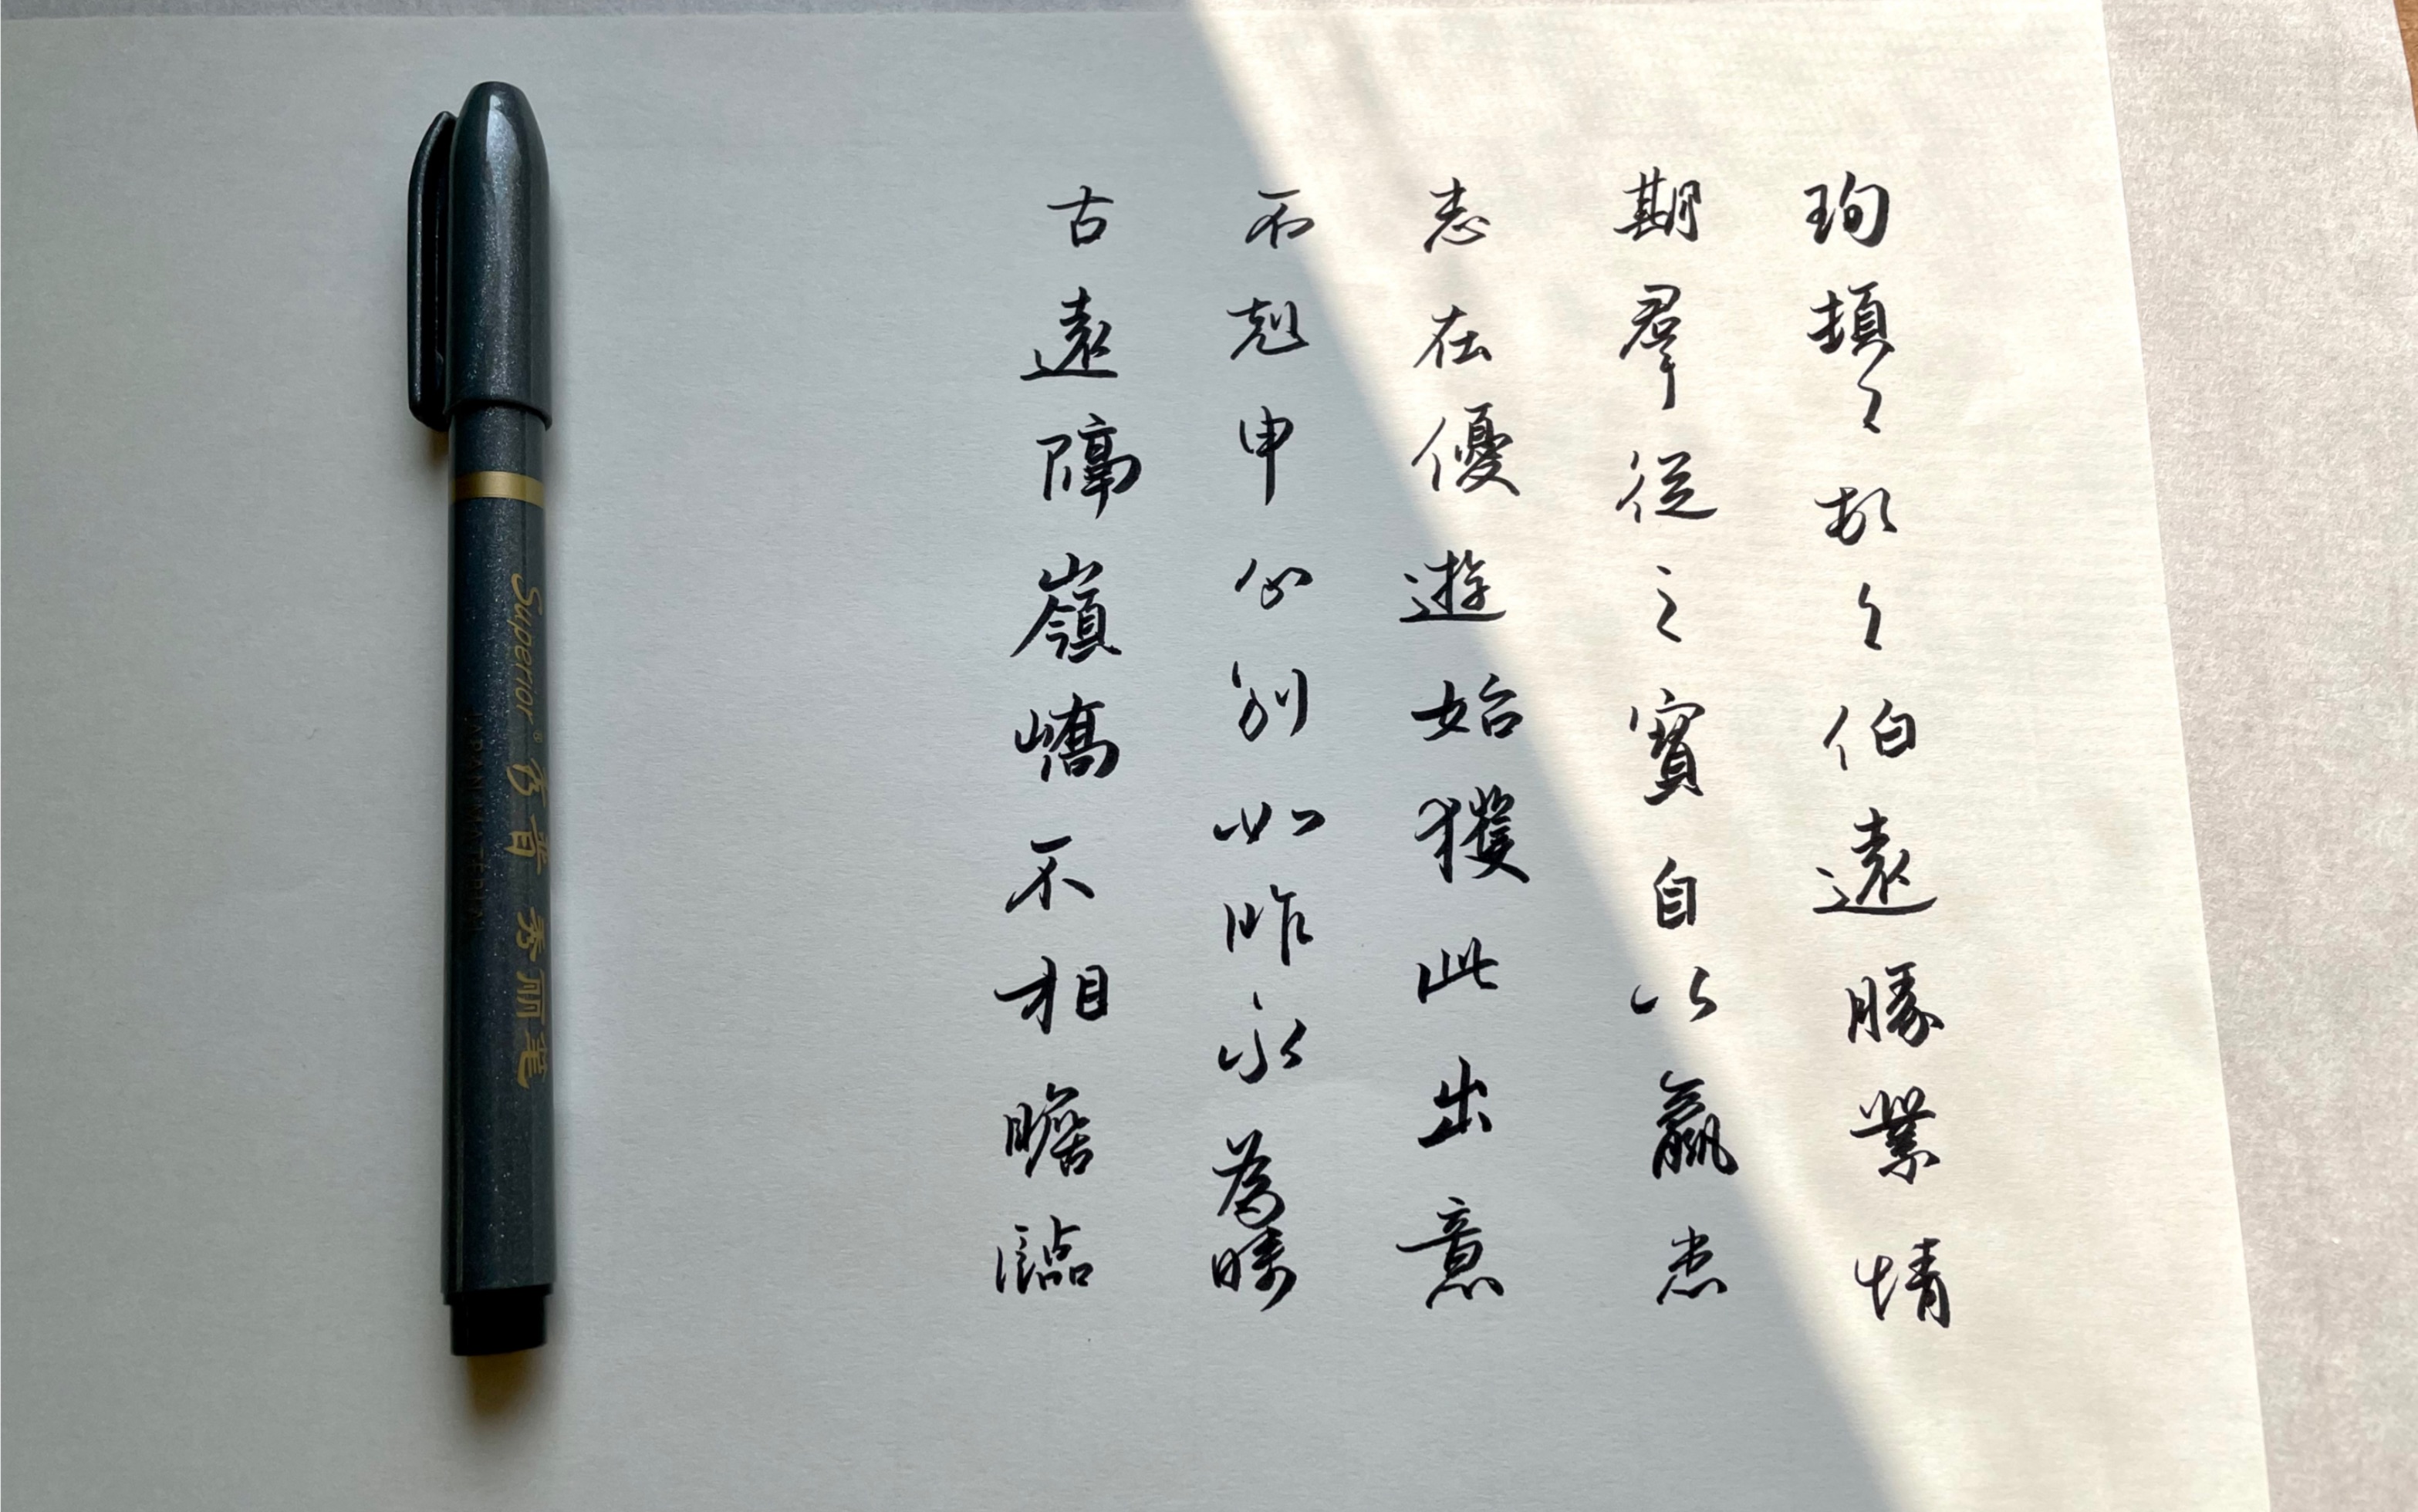 珣頓首頓首伯遠勝業情
期羣從之寶自以羸患
志在優遊始獲此出意
不剋申分別如昨永為疇
古遠隔嶺嶠不相瞻臨
Superior® 秀丽笔
JAPAN MATERIAL